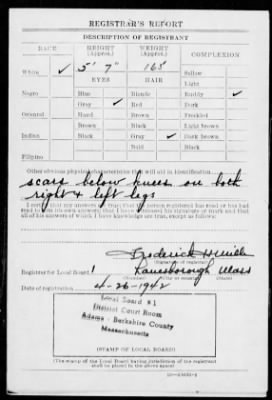 REGISTRAR'S REPORT
DESCRIPTION OF REGISTRANT
RACE HEIGHT (Approx.) WEIGHT (Approx.) COMPLEXION
White ✓ 5' 7" 168 Sallow
EYES HAIR Light
Negro Blue Blonde Ruddy ✓
Gray ✓ Red Dark
Oriental Hazel Brown Freckled
Brown Black Light brown
Indian Black Gray ✓ Dark brown
Bald Black
Filipino
Other obvious physical characteristics that will aid in identification
scars below knees on both
right & left legs
I certify that my answers are true; that the person registered has read or has had read to him his own answers; that I have witnessed his signature or mark and that all of his answers of which I have knowledge are true, except as follows:
Frederick H
(Signature of registrar)
Registrar for Local Board 1 Lanesborough Mass
Date of registration 4-26-1942
Local Board #1
District Court Room
Adams - Berkshire County
Massachusetts
(STAMP OF LOCAL BOARD)
(The stamp of the Local Board having jurisdiction of the registrant shall be placed in the above space)